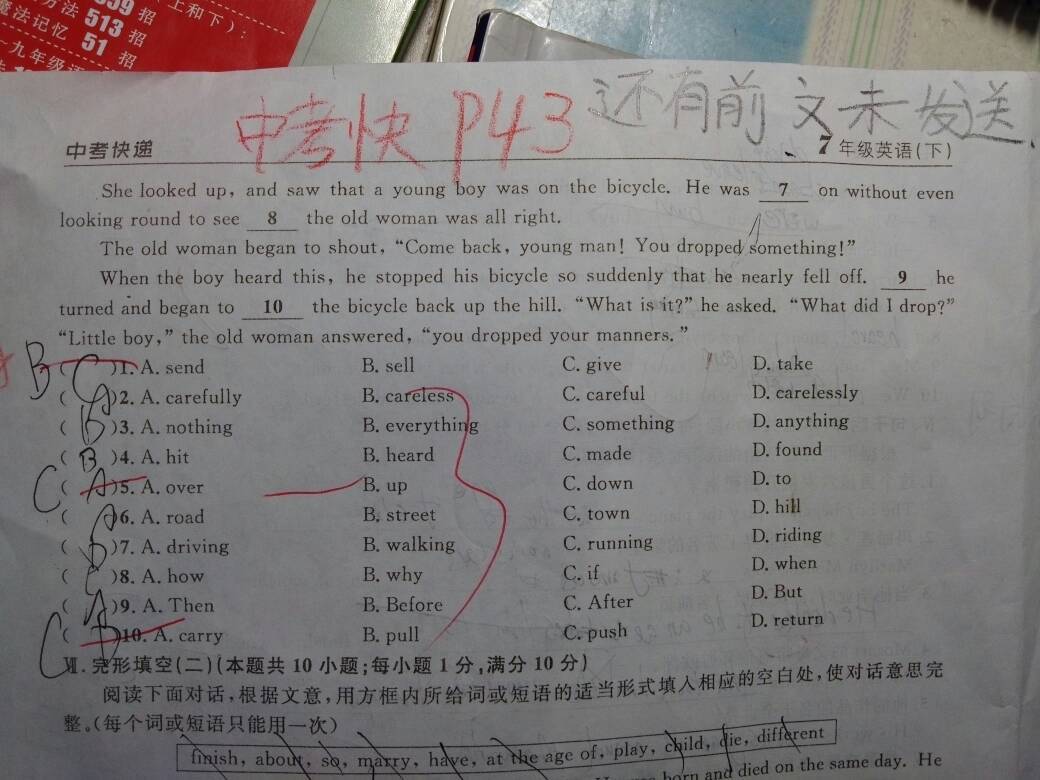 招
方法 513 招
魔法记忆 51 招
上和下）：
中考快 P43 还有前文未发送
中考快递
7年级英语(下)
She looked up, and saw that a young boy was on the bicycle. He was 7 on without even
looking round to see 8 the old woman was all right.
The old woman began to shout,“Come back, young man! You dropped something!”
When the boy heard this, he stopped his bicycle so suddenly that he nearly fell off. 9 he
turned and began to 10 the bicycle back up the hill. “What is it?” he asked. “What did I drop?”
“Little boy,” the old woman answered, “you dropped your manners.”
B ( C )1. A. send B. sell C. give D. take
( A )2. A. carefully B. careless C. careful D. carelessly
( B )3. A. nothing B. everything C. something D. anything
( B )4. A. hit B. heard C. made D. found
C ( A )5. A. over B. up C. down D. to
( A )6. A. road B. street C. town D. hill
( D )7. A. driving B. walking C. running D. riding
( C )8. A. how B. why C. if D. when
( A )9. A. Then B. Before C. After D. But
C ( D )10. A. carry B. pull C. push D. return
Ⅶ. 完形填空(二)(本题共 10 小题;每小题 1 分,满分 10 分)
阅读下面对话,根据文意,用方框内所给词或短语的适当形式填入相应的空白处,使对话意思完
整。(每个词或短语只能用一次)
finish, about, so, marry, have, at the age of, play, child, die, different
born and died on the same day. He